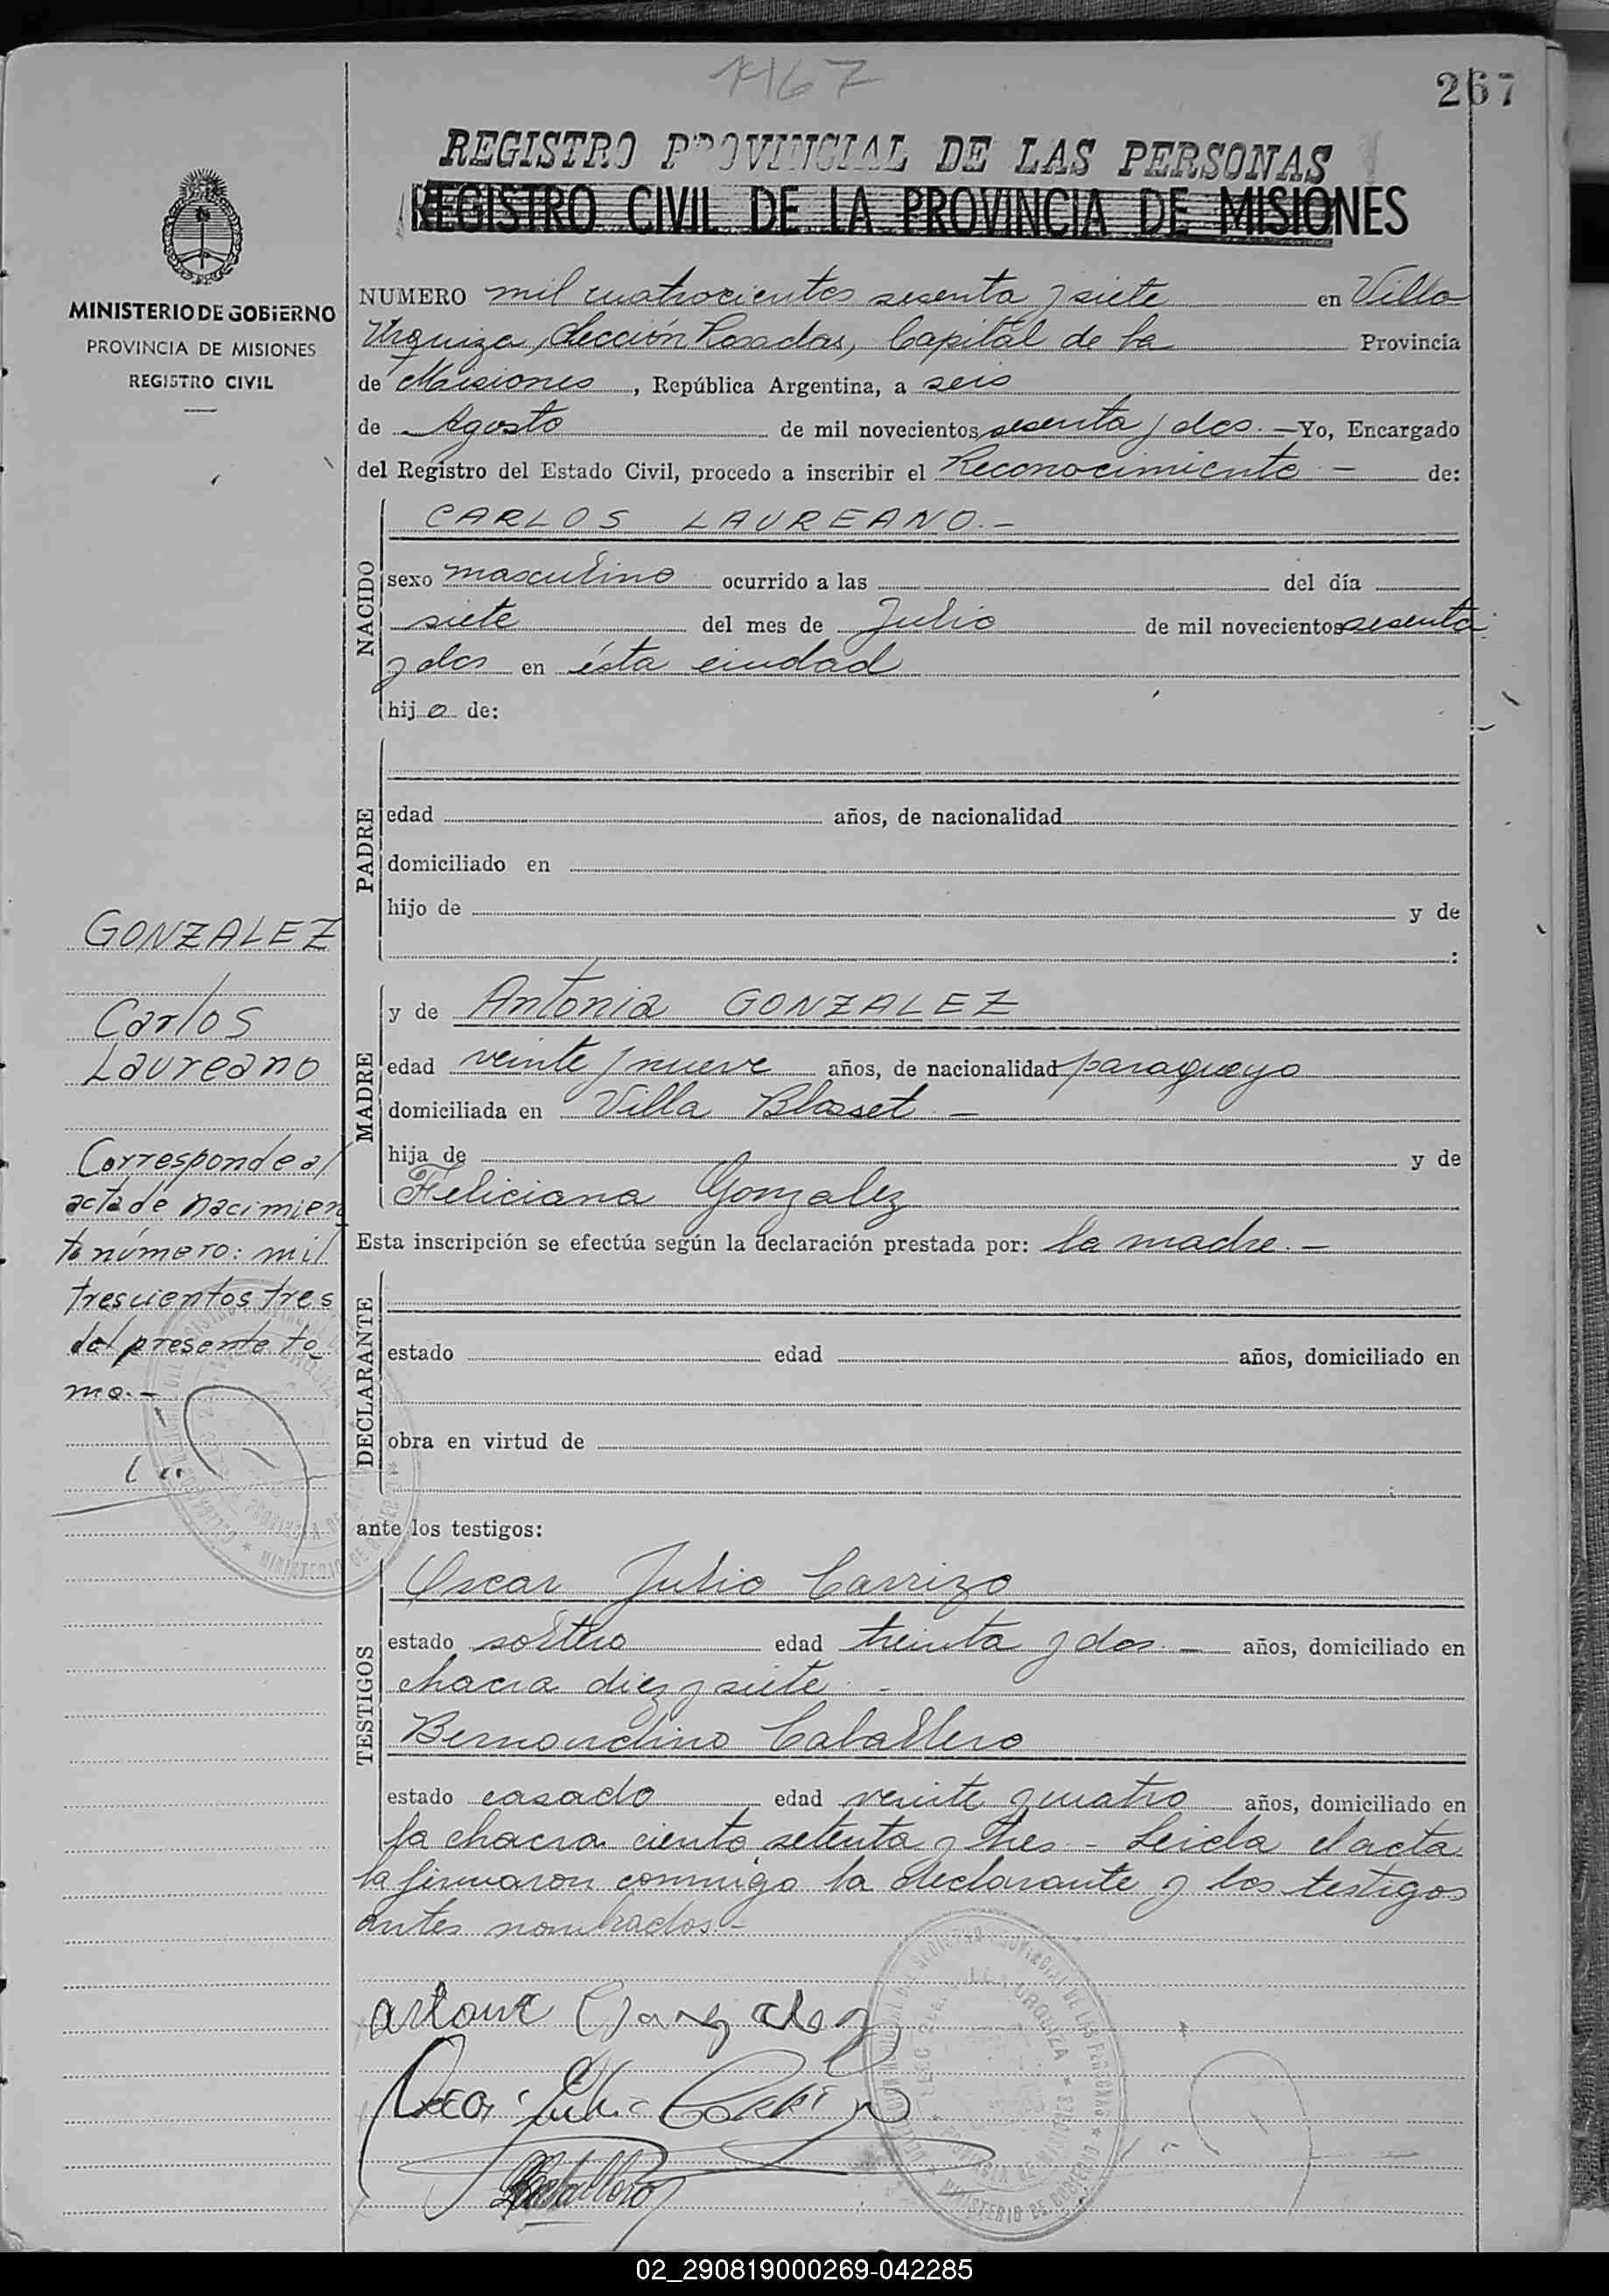 1467
267
REGISTRO PROVINCIAL DE LAS PERSONAS
REGISTRO CIVIL DE LA PROVINCIA DE MISIONES
MINISTERIO DE GOBIERNO
PROVINCIA DE MISIONES
REGISTRO CIVIL
NUMERO mil cuatrocientos sesenta y siete en Villa
Urquiza, Sección Posadas, Capital de la Provincia
de Misiones, República Argentina, a seis
de Agosto de mil novecientos sesenta y dos.- Yo, Encargado
del Registro del Estado Civil, procedo a inscribir el Reconocimiento.- de:
NACIDO
CARLOS LAUREANO.-
sexo masculino ocurrido a las del día
siete del mes de Julio de mil novecientos sesenta
y dos en ésta ciudad
hijo de:
PADRE
edad años, de nacionalidad
domiciliado en
hijo de y de
:
GONZALEZ
Carlos
Laureano
Corresponde al
acta de nacimien
to número: mil
trescientos tres
del presente to
mo.-
MADRE
y de Antonia GONZALEZ
edad veinte y nueve años, de nacionalidad paraguaya
domiciliada en Villa Blosset.-
hija de y de
Feliciana Gonzalez
Esta inscripción se efectúa según la declaración prestada por: la madre.-
DECLARANTE
estado edad años, domiciliado en
obra en virtud de
ante los testigos:
TESTIGOS
Oscar Julio Carrizo
estado soltero edad treinta y dos.- años, domiciliado en
chacra diez y siete.-
Bernardino Caballero
estado casado edad veinte y cuatro años, domiciliado en
la chacra ciento setenta y tres.- Leida el acta
la firmaron conmigo la declarante y los testigos
antes nombrados.-
Oscar Julio Carrizo
MINISTERIO DE GOBIERNO
02_290819000269-042285